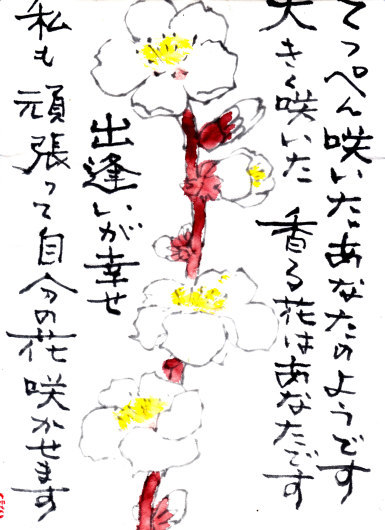 てっぺん咲いたよあなたのようです
大きく咲いた 香る花はあなたです
出逢いが幸せ
私も頑張って自分の花咲かせます